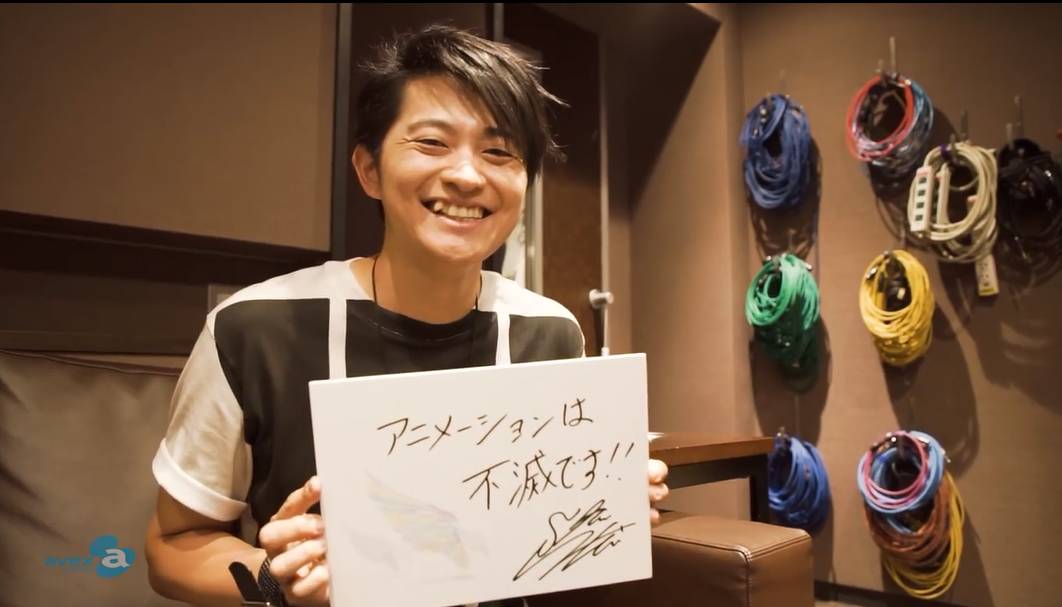 アニメーションは
不滅です!!
avex
a